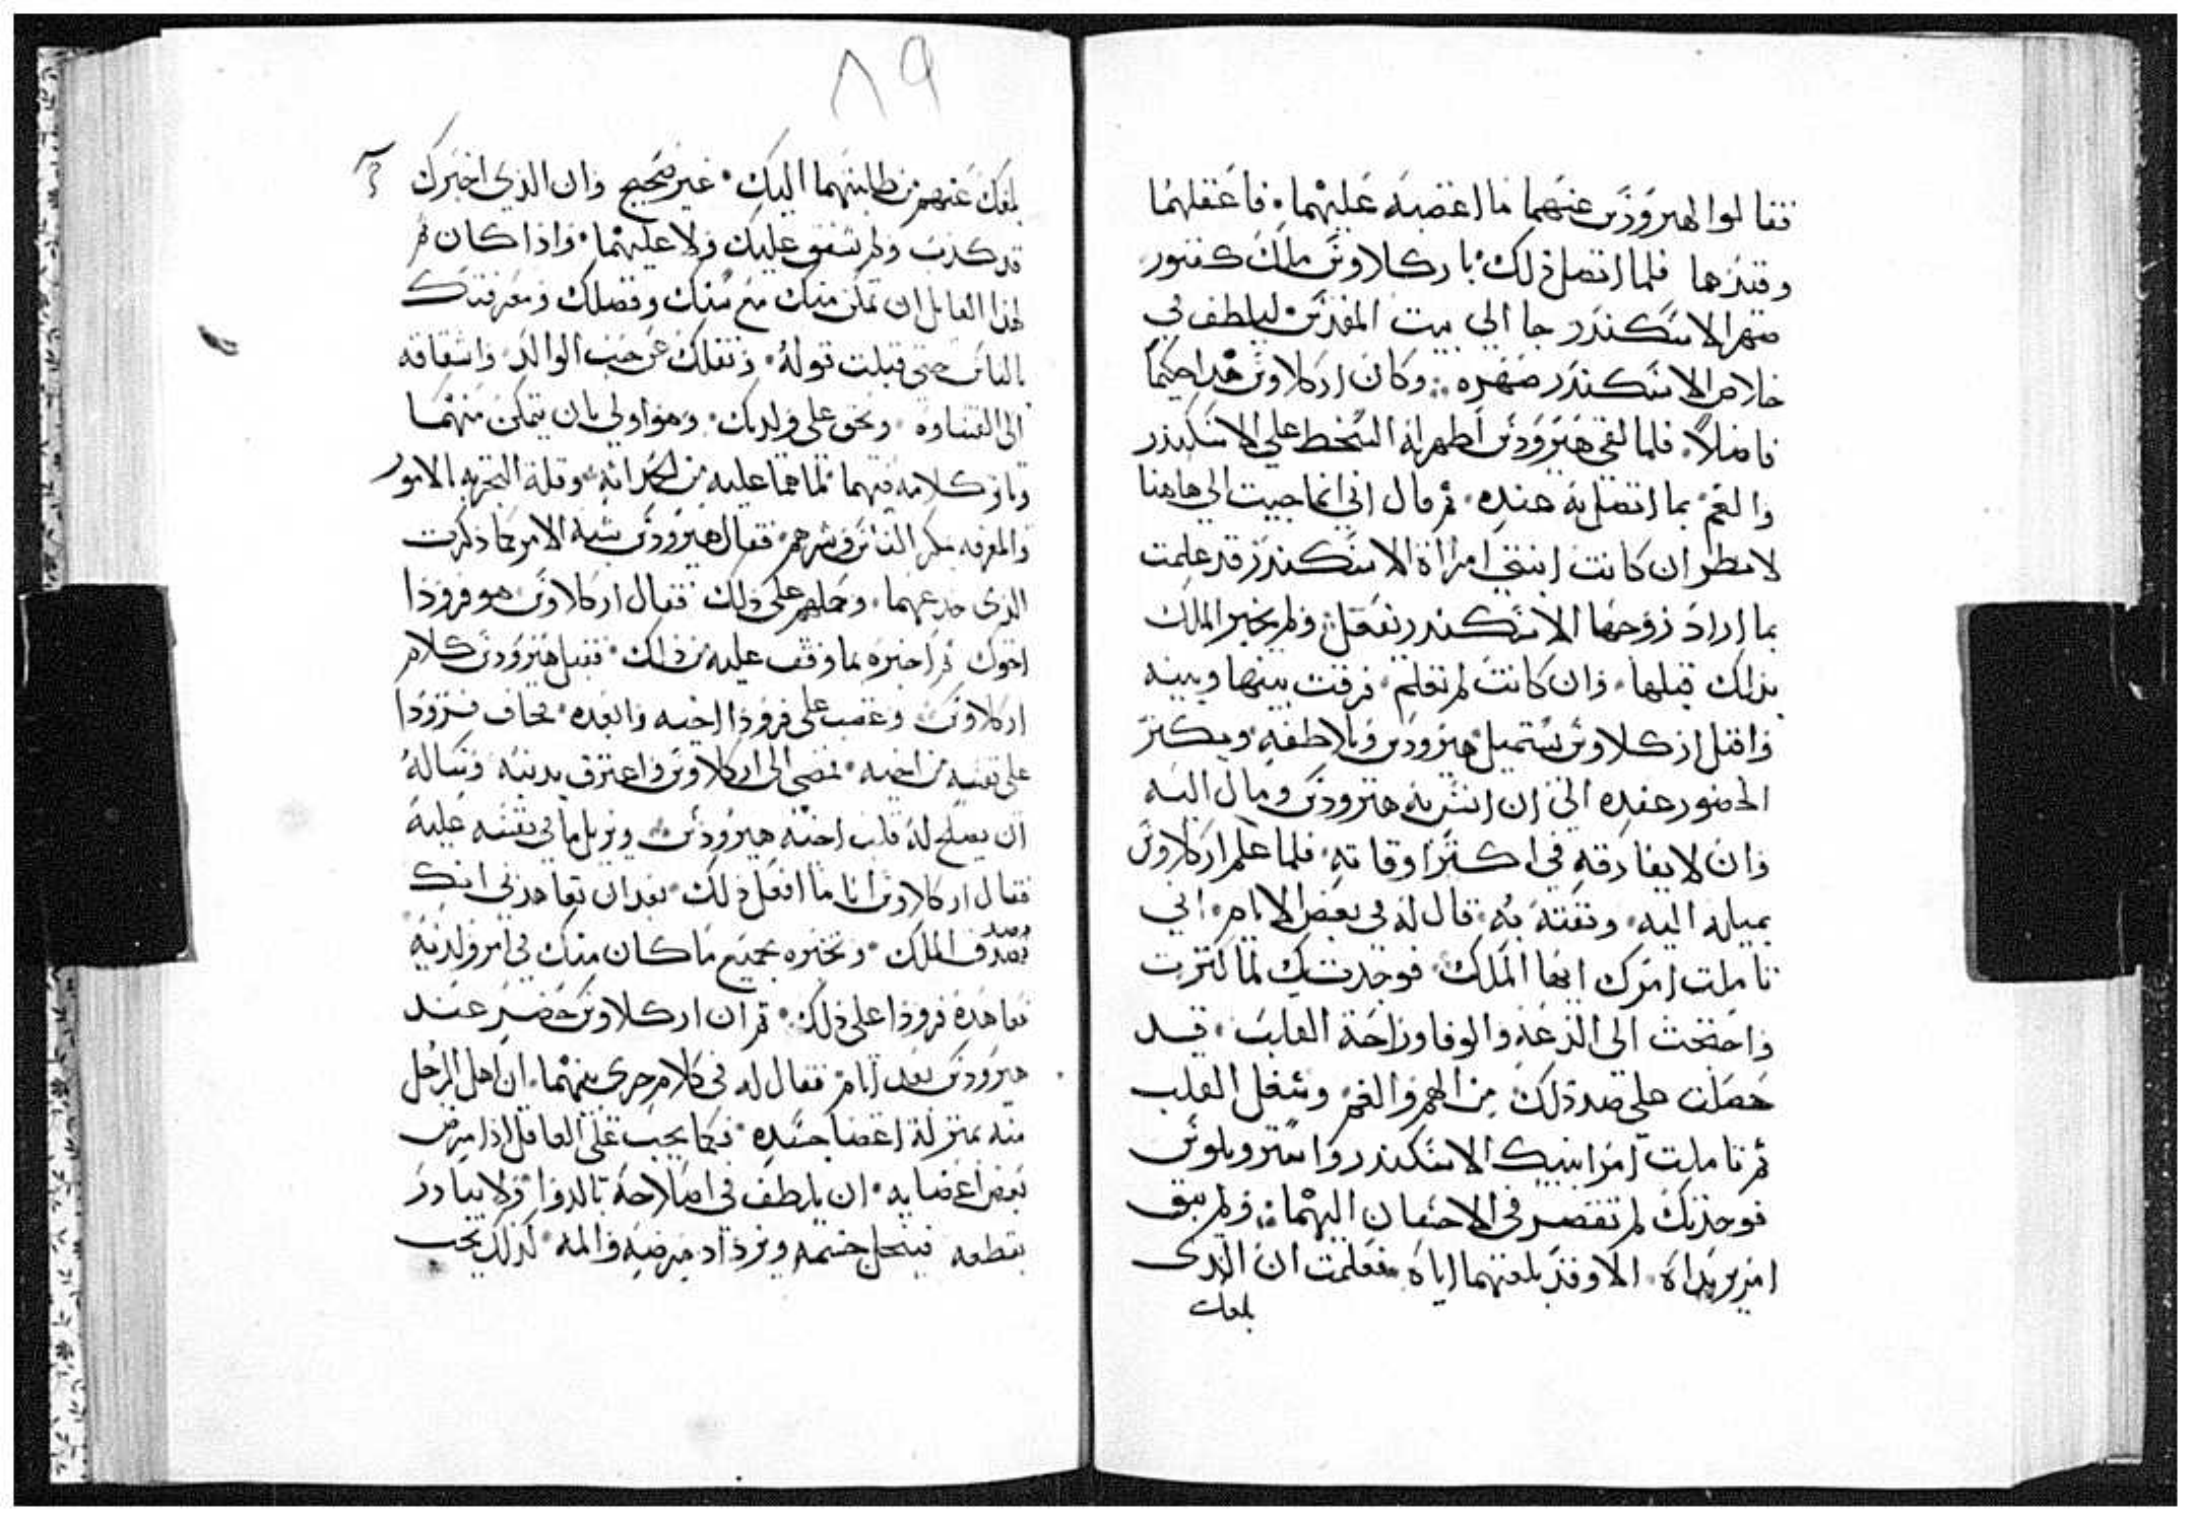 فقالوا لهيرودس عنهما ما اغضبه عليهما فاعقلهما
وقيدهما فلما اتصل ذلك باركلاوس ملك كفتور
صهر الاسكندر جا الى بيت المقدس ليلطف في
خلاص الاسكندر صهره وكان اركلاوس هدا حكيما
فاضلا فلما لقي هيرودس اظهر له السخط على الاسكندر
والغم بما اتصل به عنده ثم قال اني انما جيت الى هاهنا
لانظر ان كانت ابنتي امراة الاسكندر قد علمت
بما اراد زوجها الاسكندر تفعل ولم يخبر الملك
بذلك قبلها وان كانت لم تعلم فرقت بينها وبينه
واقبل اركلاوس يستميل هيرودس ويلاطفه ويكثر
الحضور عنده الى ان انس به هيرودس ومال اليه
وان لا يفارقه في اكثر اوقاته فلما علم اركلاوس
بميله اليه وثقته به قال له في بعض الايام اني
تاملت امرك ايها الملك فوجدتك لما كبرت
واحتجت الى الدعه والوفا وراحة القلب قد
حصلت على ضد ذلك من الهم والغم وشغل القلب
ثم تاملت امر ابنيك الاسكندر وارسترو بلوس
فوجدتك لم تقصر في الاحسان اليهما ولم يبق
امر يريداه الا وقد بلغتهما اياه فعلمت ان الذي
بلغك
٨٩
بلغك عنهم من طلبتهما اليك غير صحيح وان الذي اخبرك
قد كذب ولم يشفق عليك ولا عليهما واذا كان
لهذا القايل ان تمكن منك مع سنك وفضلك ومعرفتك
بالناس حتى قبلت قوله ونقلك عن حب الوالد واشفاقه
الى القساوه وتحق على ولديك وهو اولى بان يتمكن منهما
كلامه فيهما لما هما عليه من الحداثه وقلة التجربه الامور
والمعرفه بمكر الناس وشرهم فقال هيرودس شبه الامر كما ذكرت
الذي خدعهما وحملهم على ذلك فقال اركلاوس هو فرودا
اخوك ثم اخبره بما وقف عليه من ذلك فقبل هيرودس كلام
اركلاوس وغضب على فرودا اخيه وابعده فخاف فرودا
على نفسه من اخيه فمضى الى اركلاوس واعترف بدنبه وساله
ان يصلح له قلب اخيه هيرودس ويزيل ما في نفسه عليه
فقال اركلاوس انا ما افعل ذلك بعد ان تعاهدني انك
تصدق الملك وتخبره بجميع ما كان منك في امر ولديه
فعاهده فرودا على ذلك ثم ان اركلاوس حضر عند
هيرودس بعد ايام فقال له في كلام جرى بينهما ان اهل الرجل
منه بمنزلة اعضا جسده فكما يجب على العاقل اذا مرض
بعض اعضايه ان يلطف في اصلاحه بالدوا ولا يبادر
بقطعه فينحل جسمه ويزداد مرضه والمه كذلك يجب